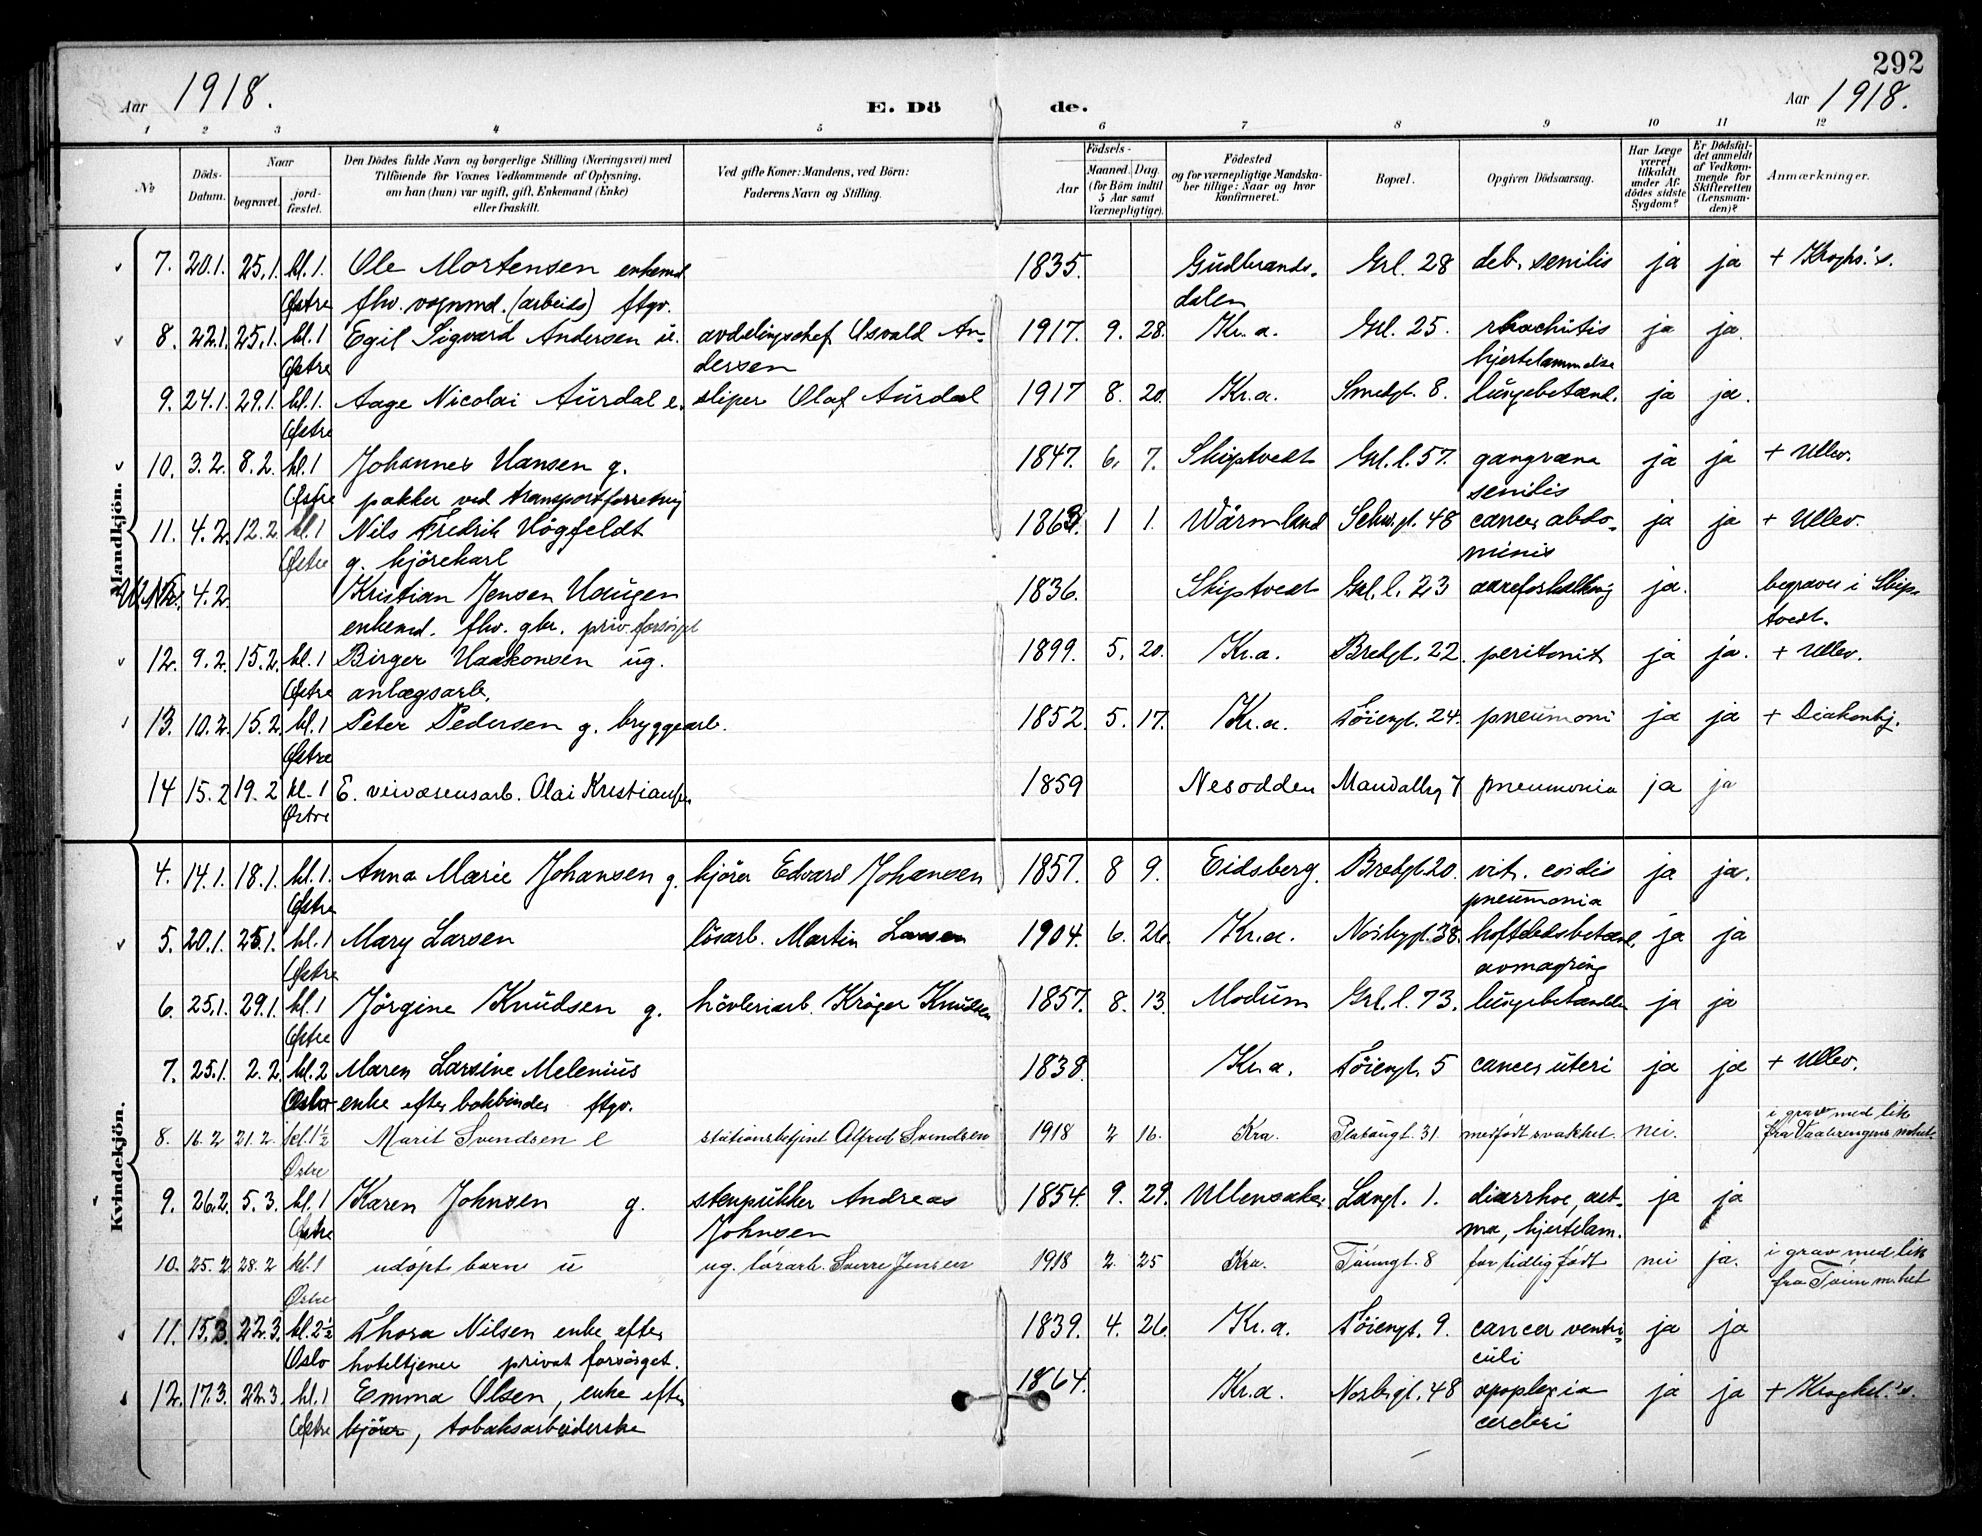 292
Aar 1918. E. Dö de. Aar 1918.
1 2 3 4 5 6 7 8 9 10 11 12
No
Döds-Datum.
Naar
begravet.
jord-fæstet.
Den Dödes fulde Navn og borgerlige Stilling (Næringsvei) med
Tilföiende for Voxnes Vedkommende af Oplysning,
om han (hun) var ugift, gift, Enkemand (Enke)
eller fraskilt.
Ved gifte Koner: Mandens, ved Börn:
Faderens Navn og Stilling.
Födsels-
Aar
Maaned. Dag.
(for Börn indtil
5 Aar samt
Værnepligtige).
Födested
og for værnepligtige Mandska-
ber tillige: Naar og hvor
konfirmeret.
Bopæl.
Opgiven Dödsaarsag.
Har Læge
været
tilkaldt
under Af-
dödes sidste
Sygdom?
Er Dödsfal-
det anmeldt
af Vedkom-
mende for
Skifteretten
(Lensman-
den)?
Anmærkninger.
Mandkjön.
7. 20.1. 25.1. kl. 1. Ole Mortensen enkemd. 1835. Gudbrands- Grl. 28 deb. senilis ja ja + Kroghs.'s.
Østre fhv. vognmd. (arbeids) ftgv. dalen
8. 22.1. 25.1. kl. 1 Egil Sigvard Andersen u. avdelingschef Osvald An- 1917. 9. 28. Kr.a. Grl. 25. rhachitis ja ja.
Østre dersen hjertelammelse
9. 24.1. 29.1. kl. 1. Aage Nicolai Aurdal e. sliper Olaf Aurdal 1917 8. 20. Kr.a. Smedgt. 8. lungebetænd. ja ja.
Østre
10. 3.2. 8.2. kl. 1 Johannes Hansen g. 1847. 6. 7. Skiptvedt Grl. l. 57. gangræna ja ja + Ullev.
Østre pakker ved transportforretng senilis
11. 4.2. 12.2. kl. 1 Nils Fredrik Högfeldt 1863. 1 1. Wärmland Schw.gt. 48 cancer abdo- ja ja + Ullev.
Østre g. kjörekarl minis
U. Nr. 4.2. Kristian Jensen Haugen 1836. Skiptvedt Grl. l. 23 aareforkalkning ja. begraves i Skip-
enkemd. fhv. gbr. priv. forsörget tvedt.
12. 9.2. 15.2. kl. 1 Birger Haakonsen ug. 1899. 5. 20. Kr.a. Bredgt. 22. peritonit ja ja. + Ullev.
Østre anlægsarb.
13. 10.2. 15.2. kl. 1 Peter Pedersen g. bryggearb. 1852. 5. 17. Kr.a. Töiengt. 24. pneumoni ja ja + Diakonhj.
Østre
14 15.2 19.2 kl. 1 E. veivæsensarb. Olai Kristiansen 1859 Nesodden Mandalsg 7 pneumonia ja ja
Østre
Kvindekjön.
4. 14.1. 18.1. kl. 1. Anna Marie Johansen g. kjörer Edvard Johansen 1857. 8 9. Eidsberg. Bredgt. 20. vit. cordis ja ja.
Østre pneumonia
5. 20.1. 25.1. kl. 1 Mary Larsen lösarb. Martin Larsen 1904. 6. 26. Kr.a. Norbygt. 38. hofteledsbetænd. ja ja
Østre avmagring
6. 25.1. 29.1. kl. 1 Jörgine Knudsen g. hövleriarb. Kröger Knudsen 1857. 8. 13. Modum Grl. l. 73. lungebetændelse ja ja
Østre
7. 25.1. 2.2. kl. 2 Maren Larsine Melenius 1838. Kr.a. Töiengt. 5 cancer uteri ja ja + Ullev.
Oslo enke efter bokbinder ftgv.
8. 16.2 21.2. kl. 1½ Marit Svendsen e stationsbetjent Alfred Svendsen 1918 2 16. Kra. Platougt. 31. medfödt svakhet. nei. i grav med lik
Østre fra Vaalerengens m.het
9. 26.2. 5.3. kl. 1 Karen Johnsen g. stenpukker Andreas 1854. 9. 29. Ullensaker Langt. 1. diarrhoe, ast- ja ja
Østre Johnsen ma, hjertelam.
10. 25.2 28.2 kl. 1 udöpt barn u ug. lösarb. Sverre Jensen 1918 2. 25 Kra. Töiengt. 8 for tidlig födt nei ja. i grav med lik
Østre fra Töien m.het
11. 15.3. 22.3. kl. 2½ Thora Nilsen enke efter 1839. 4. 26. Kr.a. Töiengt. 9. cancer ventri- ja ja
Oslo hoteltjener privat forsörget. culi
12. 17.3. 22.3. kl. 1 Emma Olsen, enke efter 1864. Kr.a. Norbygt. 48 apoplexia ja ja + Kroghst.'s.
Østre kjörer, tobaksarbeiderske cerebri